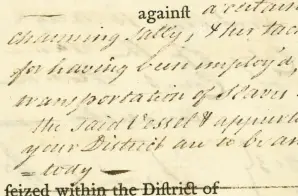 against a certain
charming Sally, & her tac
for having been employ'd,
transportation of Slaves
the said Vessel & appurte
your District are to be an
tody
ſeized within the Diſtrict of